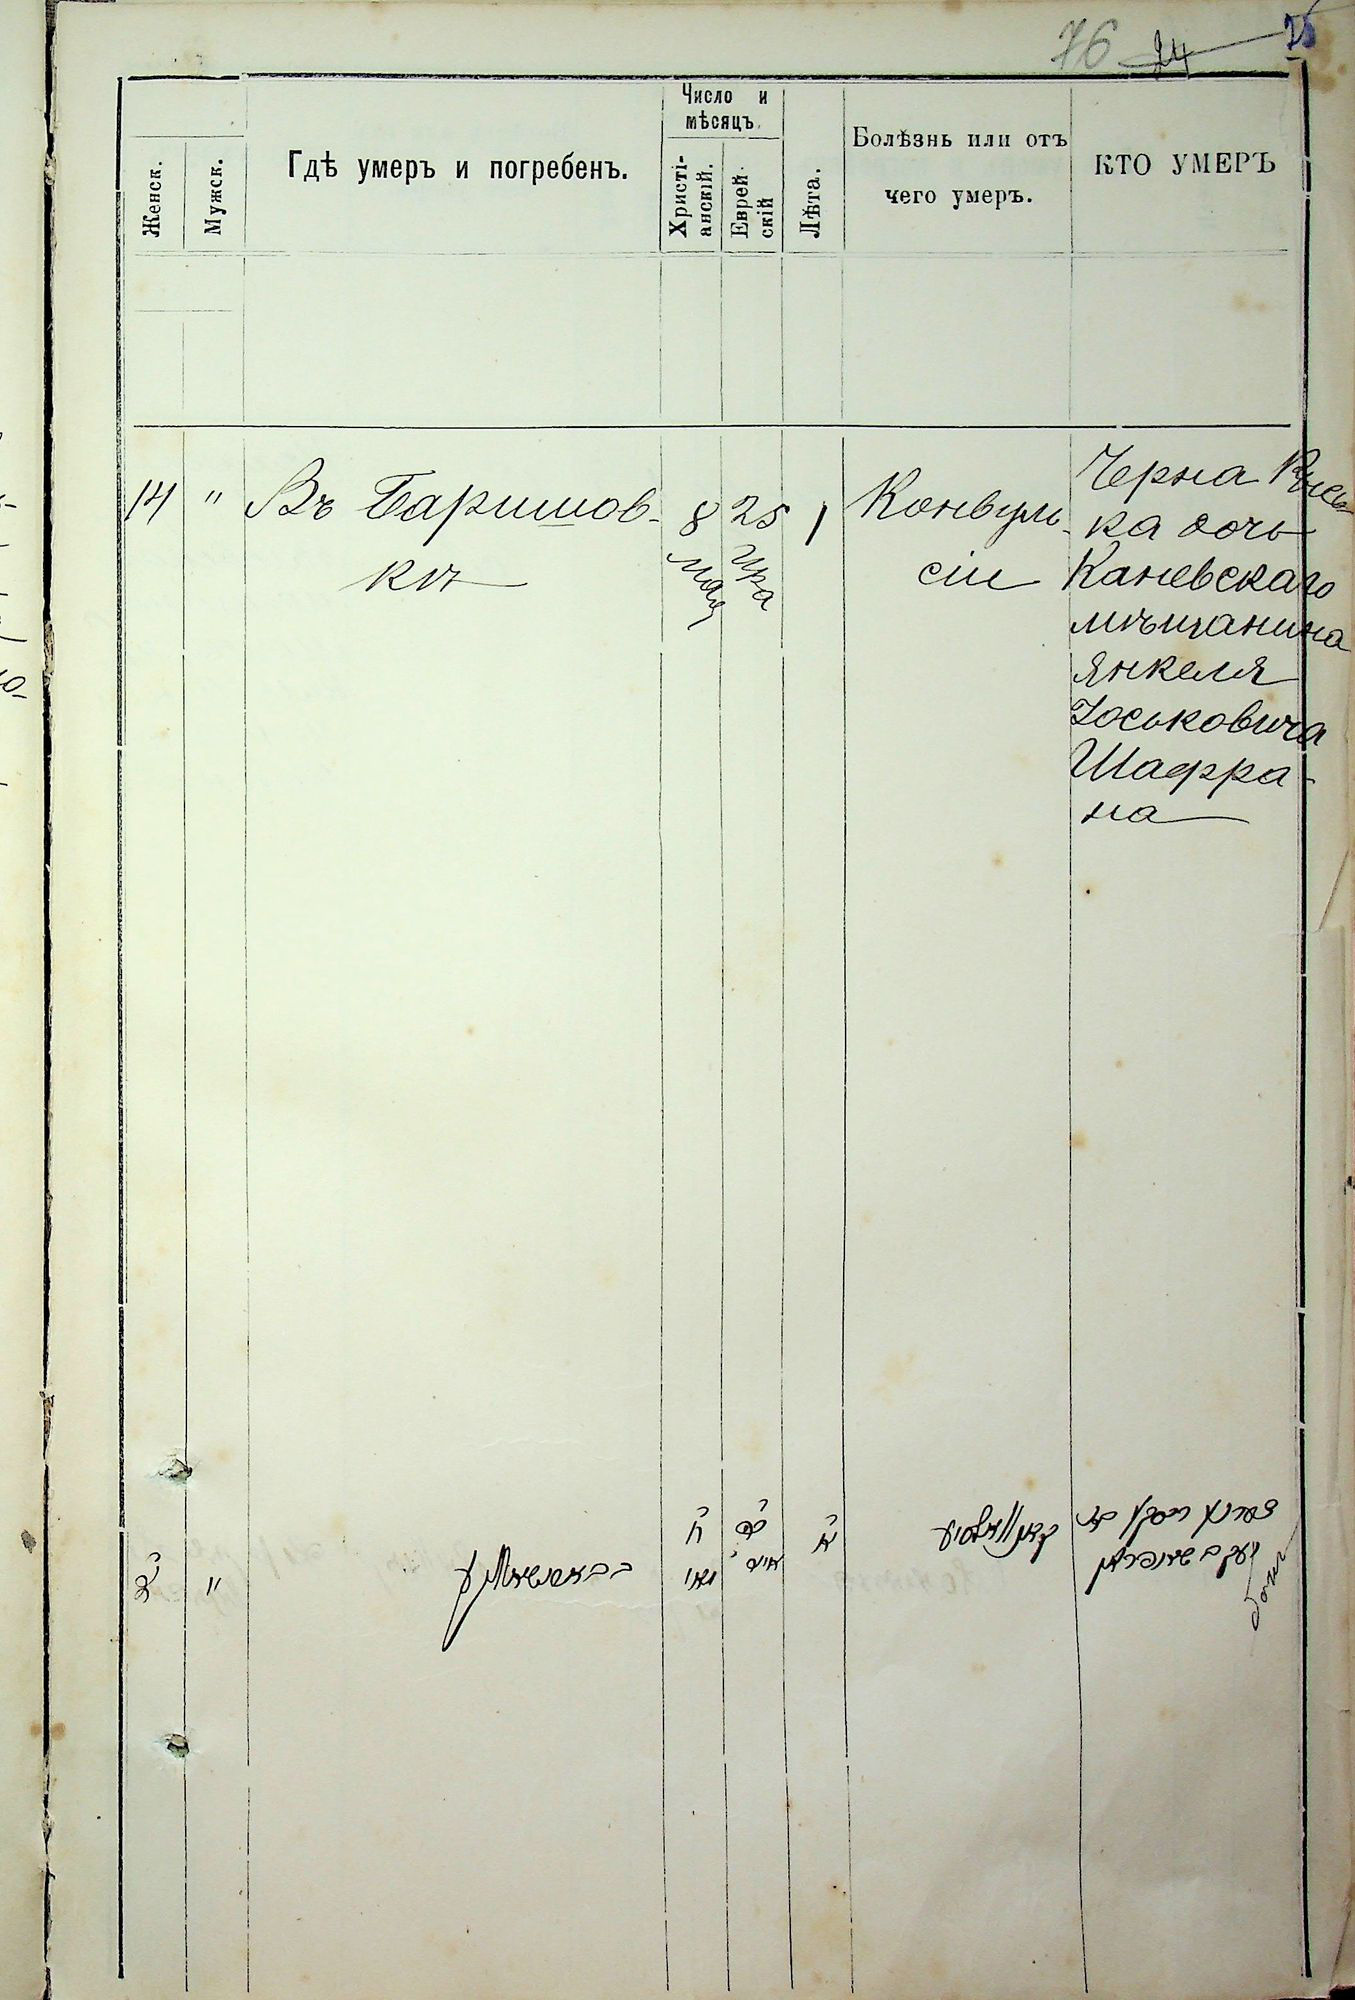 76 24 75
Женск.
Мужск.
Гдѣ умеръ и погребенъ.
Число и
мѣсяцъ.
Христі-
анскій.
Еврей-
скій
Лѣта.
Болѣзнь или отъ
чего умеръ.
КТО УМЕРЪ
14 " Въ Баришов-
кѣ
8
мая
25
Ира
1
Конвуль-
сіи
Черна Рись-
ка дочь
Каневскаго
мѣщанина
Янкеля
Іоськовича
Шафра-
на
"
ח
מאי
כה
אייר
א